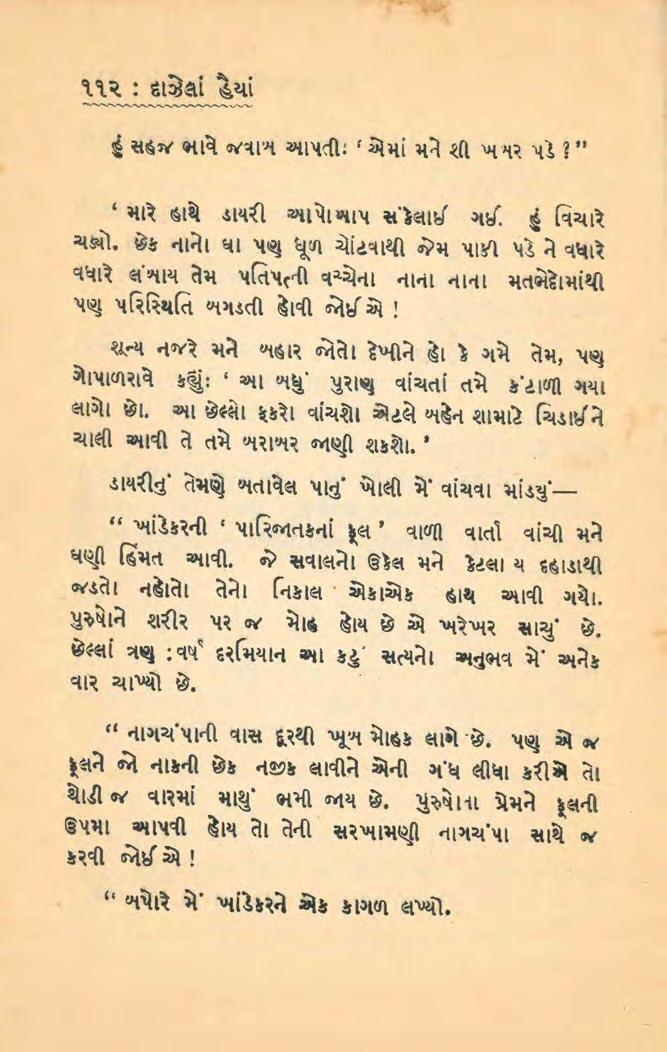 ૧૧૨ : દાઝેલાં હૈયાં
હું સહજ ભાવે જવાબ આપતીઃ ‘ એમાં મને શી ખબર પડે ?”
‘ મારે હાથે ડાયરી આપોઆપ સંકેલાઈ ગઈ. હું વિચારે
ચડ્યો. છેક નાનો ઘા પણ ધૂળ ચોંટવાથી જેમ પાકી પડે ને વધારે
વધારે લંબાય તેમ પતિપત્ની વચ્ચેના નાના નાના મતભેદોમાંથી
પણ પરિસ્થિતિ બગડતી હોવી જોઈએ !
શૂન્ય નજરે મને બહાર જોતો દેખીને હો કે ગમે તેમ, પણ
ગોપાળરાવે કહ્યુંઃ ‘ આ બધું પુરાણ વાંચતાં તમે કંટાળી ગયા
લાગો છો. આ છેલ્લો ફકરો વાંચશો એટલે બહેન શામાટે ચિડાઈને
ચાલી આવી તે તમે બરાબર જાણી શકશો. ’
ડાયરીનું તેમણે બતાવેલ પાનું ખોલી મેં વાંચવા માંડ્યું—
“ ખાંડેકરની ‘ પારિજાતકનાં ફૂલ ’ વાળી વાર્તા વાંચી મને
ઘણી હિંમત આવી. જે સવાલનો ઉકેલ મને કેટલા ય દહાડાથી
જડતો નહોતો તેનો નિકાલ એકાએક હાથ આવી ગયો.
પુરુષોને શરીર પર જ મોહ હોય છે એ ખરેખર સાચું છે.
છેલ્લાં ત્રણ : વર્ષ દરમિયાન આ કટુ સત્યનો અનુભવ મેં અનેક
વાર ચાખ્યો છે.
“ નાગચંપાની વાસ દૂરથી ખૂબ મોહક લાગે છે. પણ એ જ
ફૂલને જો નાકની છેક નજીક લાવીને એની ગંધ લીધા કરીએ તો
થોડી જ વારમાં માથું ભમી જાય છે. પુરુષોના પ્રેમને ફૂલની
ઉપમા આપવી હોય તો તેની સરખામણી નાગચંપા સાથે જ
કરવી જોઈએ !
“ બપોરે મેં ખાંડેકરને એક કાગળ લખ્યો.